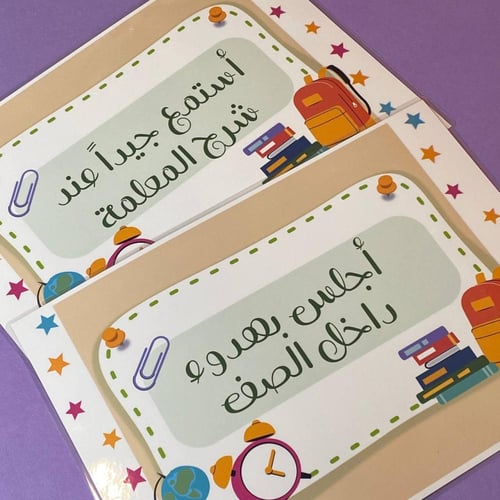 أستمع جيداً عند
شرح المعلمة
أجلس بهدوء
داخل الصف